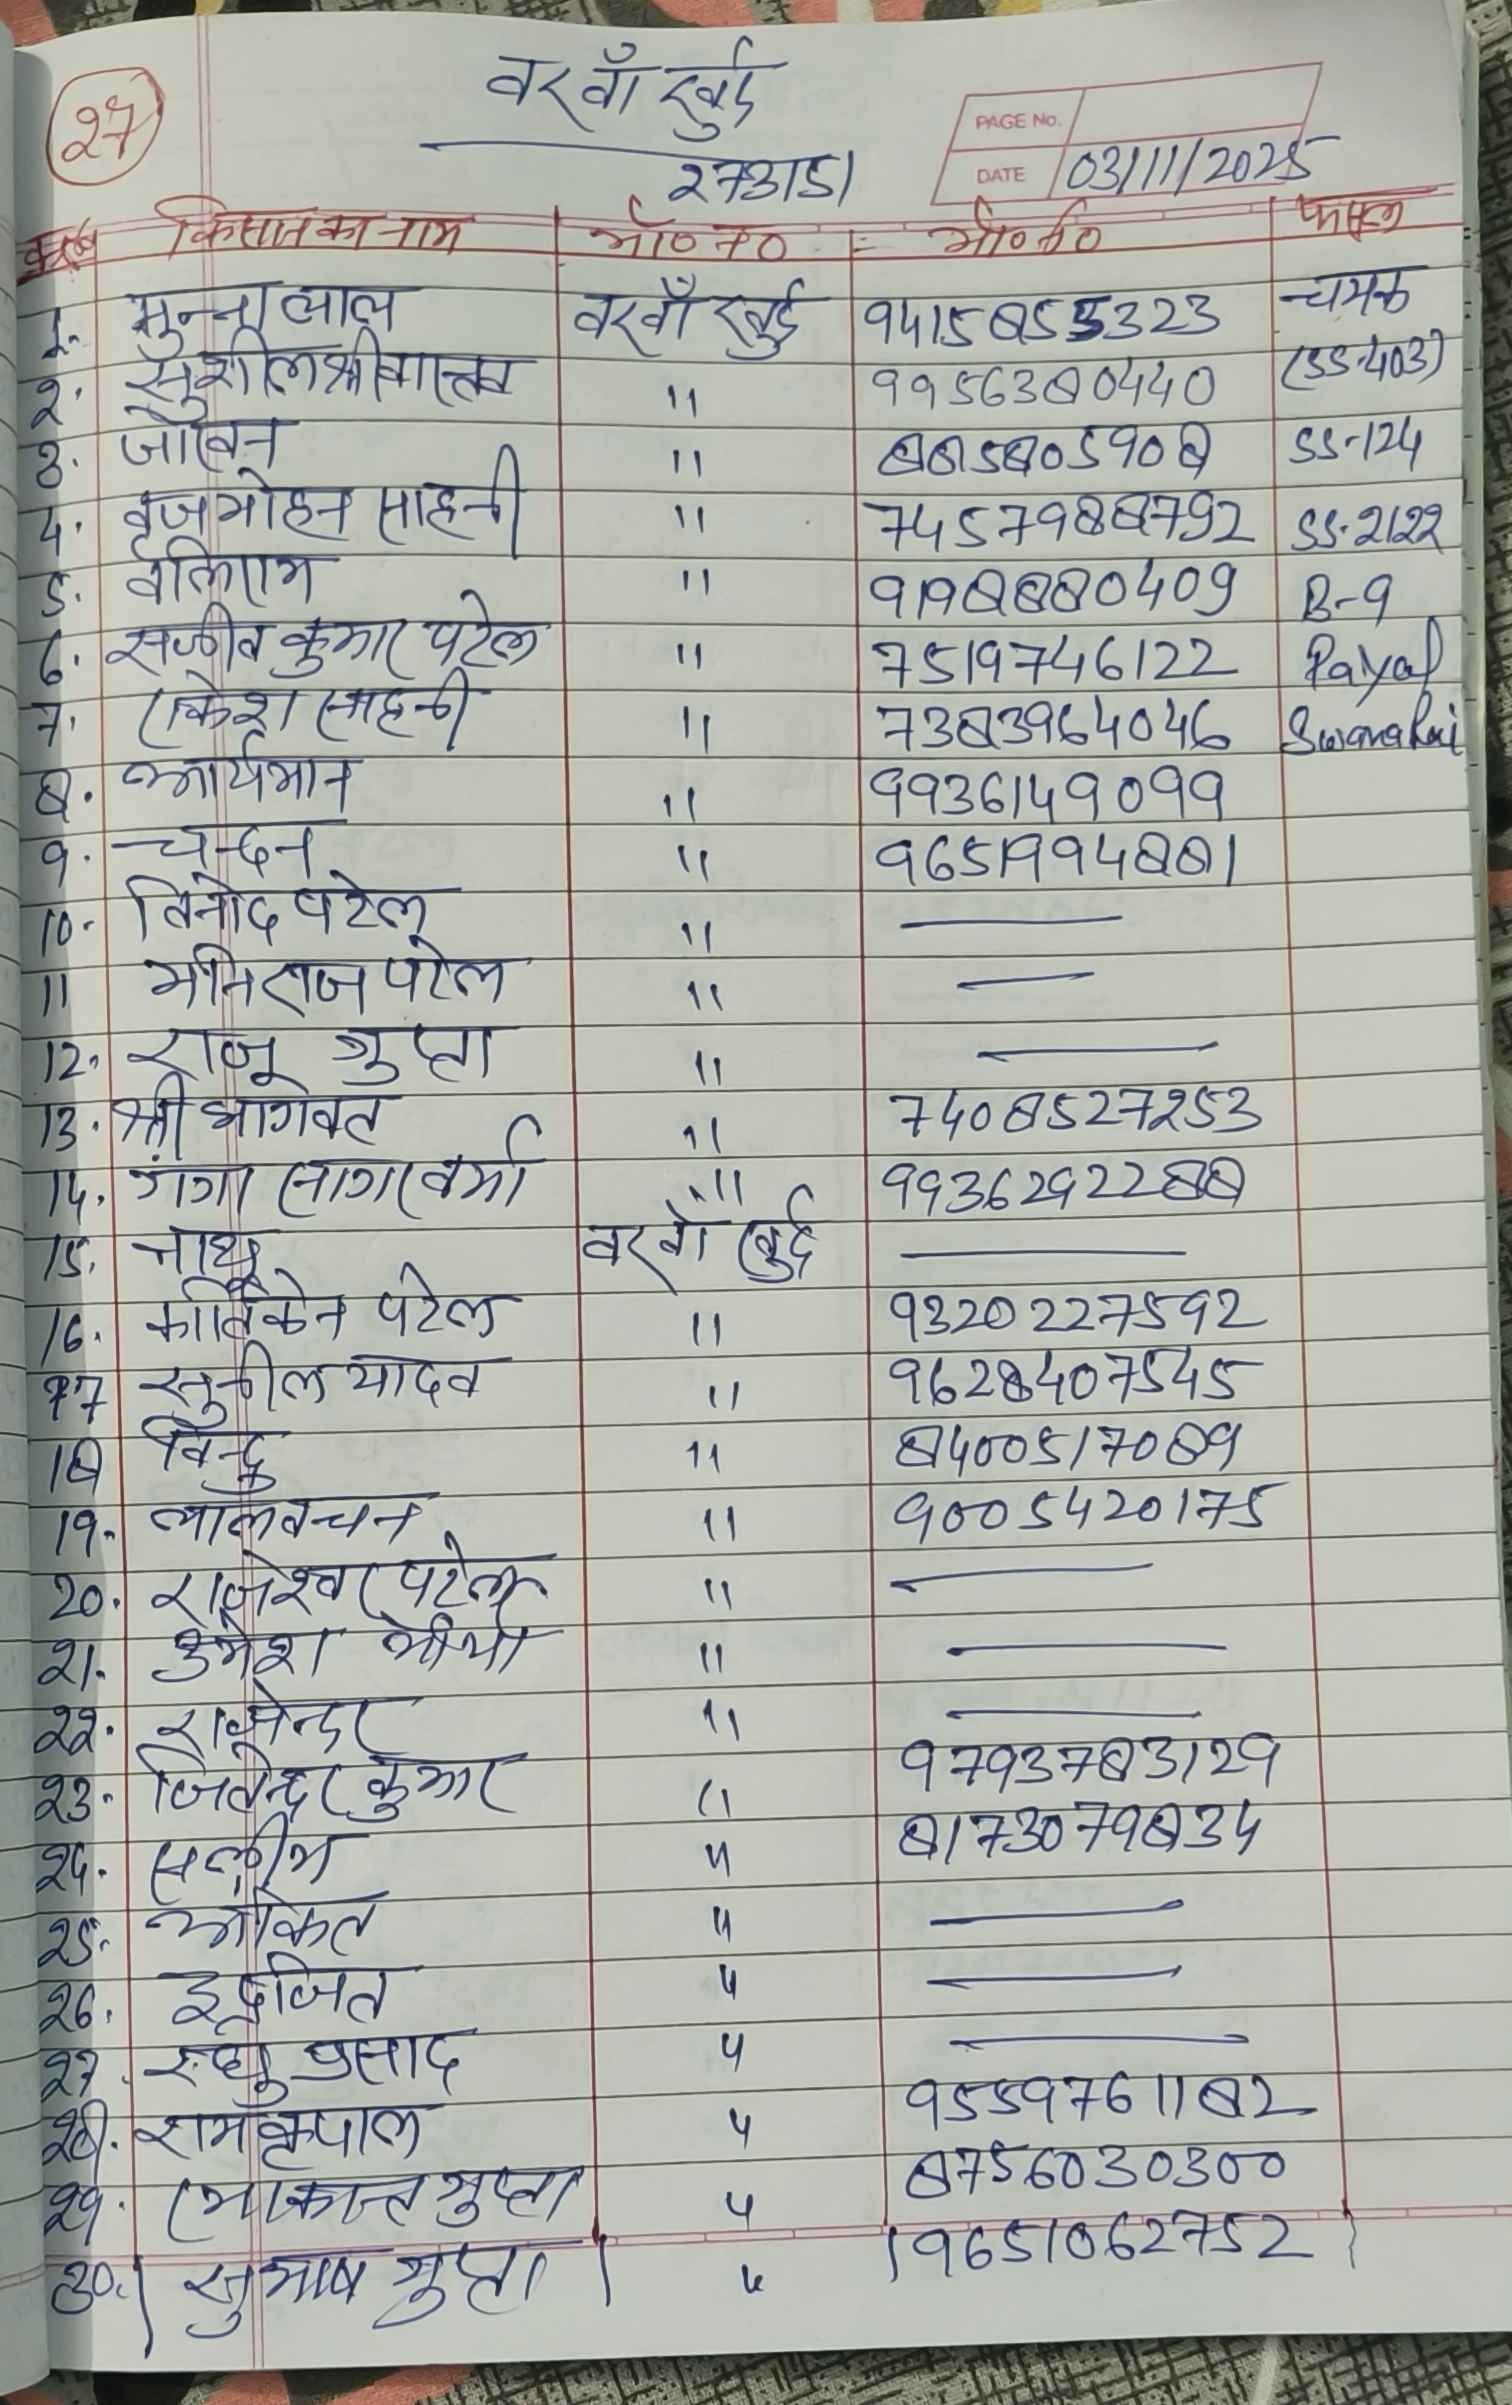 27
वरवाँ खुर्द
रमडा
PAGE No.
DATE 03/11/2025
क्र०सं किसान का नाम गाँ० ना० मो० नं० फसल
1. मुन्नालाल वरवाँ खुर्द 9415855323 चमक
2. सुशील श्रीवास्तव " 9956380440 (SS-403)
3. जोखन " 8858805908 SS-124
4. वृजमोहन साहनी " 7457988792 SS-2122
5. वलिराम " 9198880409 B-9
6. सजीव कुमार पटेल " 7519746122 Payal
7. राकेश साहनी " 7383964046 Swarnakri
8. आर्यमान " 9936149099
9. चन्दन " 9651994881
10. विनोद पटेल " —
11 मनिराज पटेल " —
12. राजू गुप्ता " —
13. श्री भागवत " 7408527253
14. गंगा सागर वर्मा " 9936292288
15. नाथू वरवाँ खुर्द —
16. कार्तिकेन पटेल " 9320227592
17 सुनील यादव " 9628407545
18 विन्दु " 8400517089
19. लालवचन " 9005420175
20. राजेश्वर पटेल " —
21. उमेश मौर्या " —
22. राजेन्द्र " —
23. जितेन्द्र कुमार " 9793783129
24. सलीम " 8173079834
25. अंकित " —
26. इंद्रजित " —
27. रघु प्रसाद " —
28. रामकृपाल " 9559761182
29. रमाकान्त गुप्ता " 8756030300
30. सुभाष गुप्ता " 9651062752